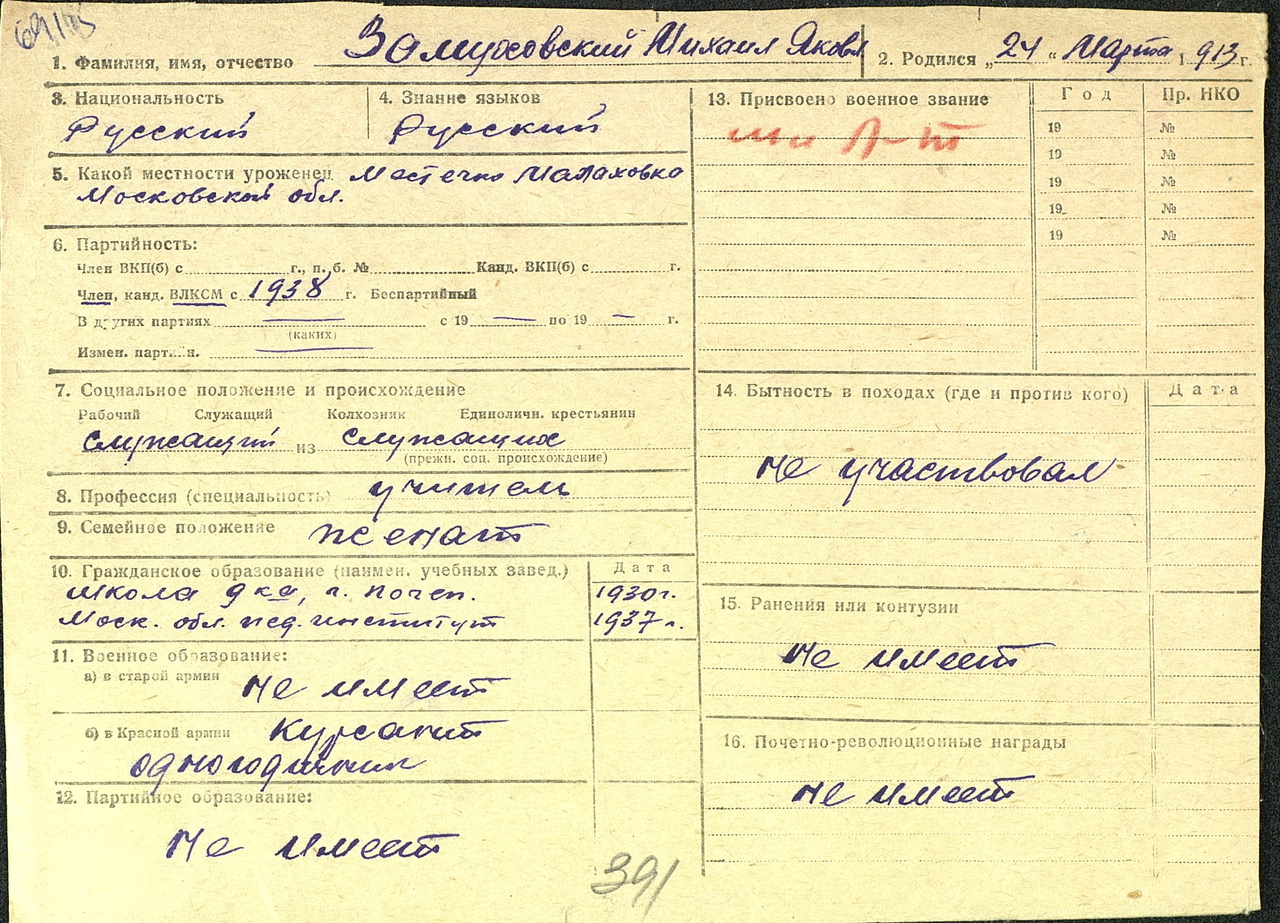 1. Фамилия, имя, отчество Замуховский Михаил Яковл
2. Родился „24 “ Марта 1913 г.
3. Национальность
Русский
4. Знание языков
Русский
5. Какой местности уроженец Местечко Малаховка
Московской обл.
6. Партийность:
Член ВКП(б) с г., п. б. № Канд. ВКП(б) с г.
Член, канд. ВЛКСМ с 1938 г. Беспартийный
В других партиях — с 19 — по 19 — г.
(каких)
Измен. партийн. —
7. Социальное положение и происхождение
Рабочий Служащий Колхозник Единоличн. крестьянин
служащий из служащих
(прежн. соц. происхождение)
8. Профессия (специальность) учитель
9. Семейное положение женат
10. Гражданское образование (наимен. учебных завед.) Дата
школа 9ка, г. Почеп. 1930г.
Моск. обл. пед. институт 1937г.
11. Военное образование:
а) в старой армии не имеет
б) в Красной армии курсант
одногодичник
12. Партийное образование:
не имеет
13. Присвоено военное звание Год Пр. НКО
мл Л-т
19 №
19 №
19 №
19 №
19 №
14. Бытность в походах (где и против кого) Дата
не участвовал
15. Ранения или контузии
не имеет
16. Почетно-революционные награды
не имеет
391